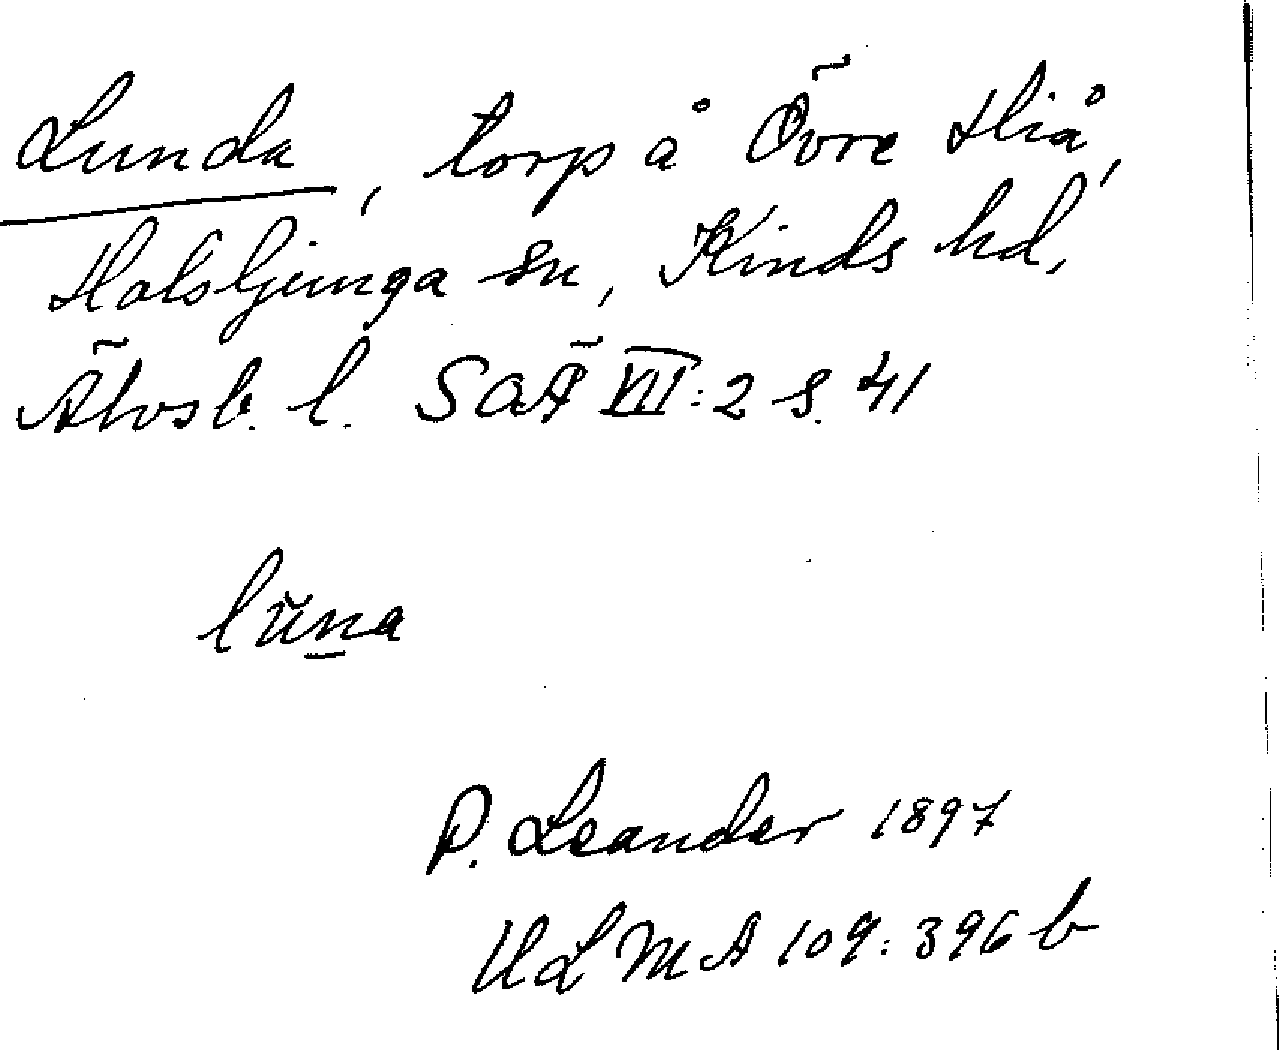 Lunda, torp å Övre Hiå,
Holsljunga sn, Kinds hd,
Älvsb. l. SOÄ VII:2 s. 41
lŭna
P. Leander 1897
ULMA 109:396 b